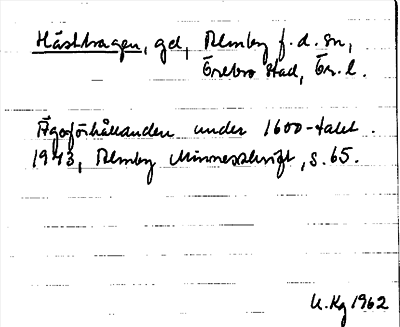 Hästhagen, gd, Almby f.d. sn,
Örebro stad, Ör. l.
Ägoförhållanden under 1600-talet.
1943, Almby Minnesskrift, s. 65.
U. Kg 1962